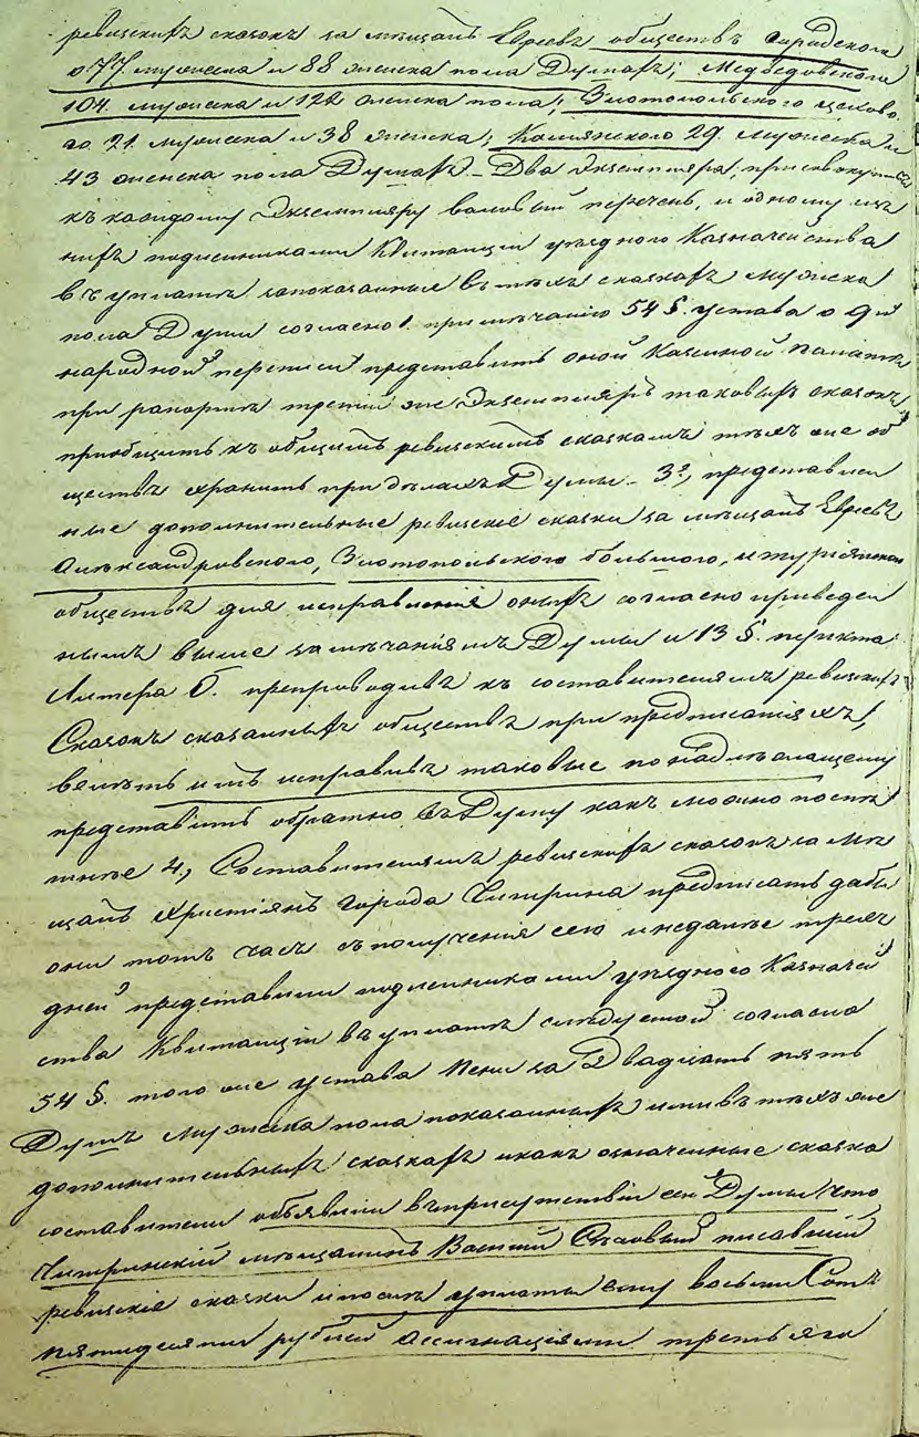 ревизскихъ сказокъ за мѣщанъ Евреевъ обществъ Городскаго
о 77. мужеска и 88 женска пола Душахъ; Медведовскаго
104. мужеска и 122 женска пола; Златопольского цехово-
го 21. мужеска и 38 женска; Камянского 29. мужеска и
43 женска пола Душахъ – Два Экземпляра, присовокупивъ
къ каждому Экземпляру валовый перечень, и одному изъ
нихъ подлинниками Квитанціи уѣзднаго Казначейства
въ уплатѣ запоказанные въ тѣхъ сказкахъ мужеска
пола Души согласно 1. примѣчанію 54 §. устава о 9й
народной переписи представить оной Казенной Палатѣ
при рапортѣ третій же Экземпляръ таковыхъ сказокъ
пріобщить къ общимъ ревизскимъ сказкамъ тѣхъ же об
ществъ хранить при дѣлахъ Думы – 3е, представлен
ные дополнительные ревизскіе сказки за мѣщанъ Евреевъ
Александровского, Златопольского большого, и туріянского
обществъ для исправленія оныхъ согласно приведен
нымъ выше замѣчаніямъ Думы и 13 §. пункта
Литера б. препроводивъ къ составителямъ ревизскихъ
Сказокъ сказанныхъ обществъ при предписаніяхъ,
велѣть имъ исправивъ таковые по надлежащему
представить обратно въ Думу какъ можно поспѣ
шнѣе 4, Составителямъ ревизскихъ сказокъ за мѣ
щанъ Христіянъ города Чигирина предписать дабы
они тотъ часъ съ полученія сего и недалѣе трехъ
дней представили подлинниками уѣзднаго Казначей
ства Квитанціи въ уплатѣ слѣдуемой согласно
54 §. того же устава Пени за Двадцать пять
Душъ мужеска пола показанныхъ ими въ тѣхъ же
дополнительныхъ сказкахъ и какъ означенные сказки
составители объявили въ присутствіи сей Думы что
Чигиринскій мѣщанинъ Василій писавшій
ревизскіе сказки и послѣ уплаты ему восьми Сотъ
пятидесяти рублей Ассигнаціями требовалъ